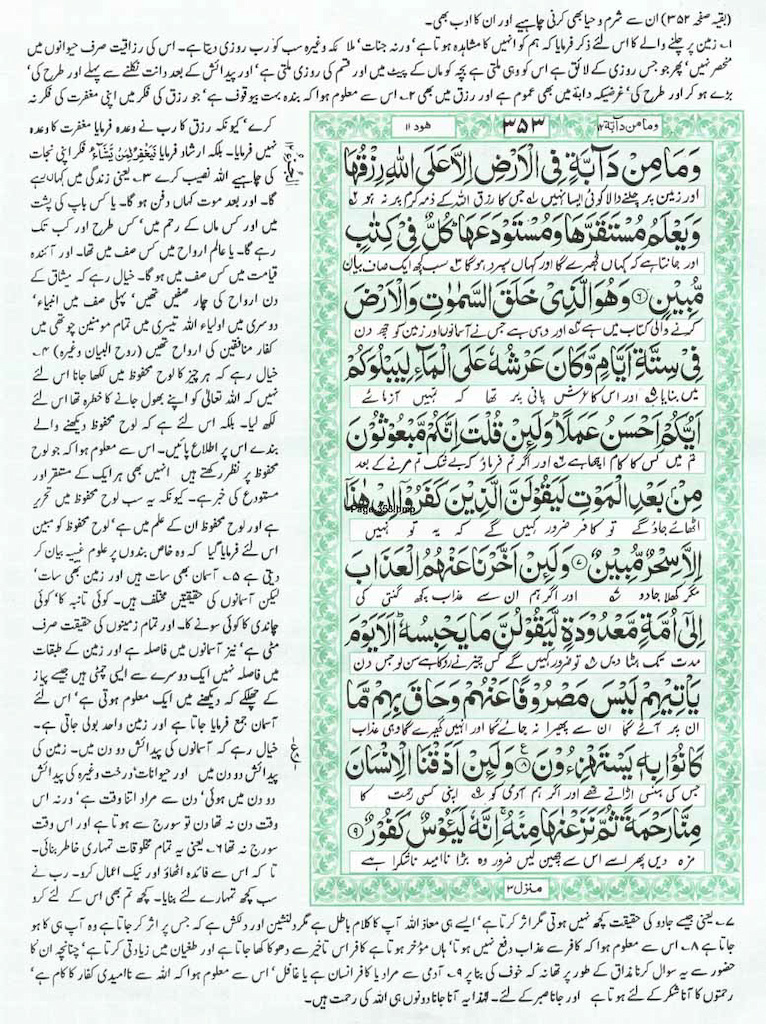 (بقیہ صفحہ ۳۵۲) ان سے شرم و حیا بھی کرنی چاہیے اور ان کا ادب بھی۔
۱۔ زمین پر چلنے والے کا اس لئے ذکر فرمایا کہ ہم کو انہیں کا مشاہدہ ہوتا ہے' ورنہ جنات' ملائکہ وغیرہ سب کو رب روزی دیتا ہے۔ اس کی رزاقیت صرف حیوانوں میں
منحصر نہیں' پھر جو جس روزی کے لائق ہے اس کو وہی ملتی ہے بچہ کو ماں کے پیٹ میں اور قسم کی روزی ملتی ہے' اور پیدائش کے بعد دانت نکلنے سے پہلے اور طرح کی'
بڑے ہو کر اور طرح کی' غرضیکہ دابۃ میں بھی عموم ہے اور رزق میں بھی ۲۔ اس سے معلوم ہوا کہ بندہ بہت بیوقوف ہے' جو رزق کی فکر میں اپنی مغفرت کی فکر نہ
وما من دآبۃ ۱۲
۳۵۳
ھود ۱۱
وَمَا مِنْ دَآبَّةٍ فِي الْاَرْضِ اِلَّا عَلَى اللّٰهِ رِزْقُهَا
اور زمین پر چلنے والا کوئی ایسا نہیں جس کا رزق اللہ کے ذمہ کرم پر نہ ہو
وَيَعْلَمُ مُسْتَقَرَّهَا وَمُسْتَوْدَعَهَا ؕ كُلٌّ فِيْ كِتٰبٍ
اور جانتا ہے کہ کہاں ٹھہرے گا اور کہاں سپرد ہو گا سب کچھ ایک صاف بیان
مُّبِيْنٍ ۶ وَهُوَ الَّذِيْ خَلَقَ السَّمٰوٰتِ وَالْاَرْضَ
کرنے والی کتاب میں ہے اور وہی ہے جس نے آسمانوں اور زمین کو چھ دن
فِيْ سِتَّةِ اَيَّامٍ وَّكَانَ عَرْشُهٗ عَلَى الْمَآءِ لِيَبْلُوَكُمْ
میں بنایا اور اس کا عرش پانی پر تھا کہ تمہیں آزمائے
اَيُّكُمْ اَحْسَنُ عَمَلًا ؕ وَلَئِنْ قُلْتَ اِنَّكُمْ مَّبْعُوْثُوْنَ
تم میں کس کا کام اچھا ہے اور اگر تم فرماؤ کہ بے شک تم مرنے کے بعد
مِنْۢ بَعْدِ الْمَوْتِ لَيَقُوْلَنَّ الَّذِيْنَ كَفَرُوْۤا اِنْ هٰذَاۤ
Page-353.bmp
اٹھائے جاؤ گے تو کافر ضرور کہیں گے کہ یہ تو نہیں
اِلَّا سِحْرٌ مُّبِيْنٌ ۷ وَلَئِنْ اَخَّرْنَا عَنْهُمُ الْعَذَابَ
مگر کھلا جادو اور اگر ہم ان سے عذاب کچھ گنتی کی
اِلٰۤى اُمَّةٍ مَّعْدُوْدَةٍ لَّيَقُوْلُنَّ مَا يَحْبِسُهٗ ؕ اَلَا يَوْمَ
مدت تک ہٹا دیں تو ضرور کہیں گے کس چیز نے روکا ہے سن لو جس دن
يَاْتِيْهِمْ لَيْسَ مَصْرُوْفًا عَنْهُمْ وَحَاقَ بِهِمْ مَّا
ان پر آئے گا ان سے پھیرا نہ جائے گا اور انہیں گھیرے گا وہی عذاب
كَانُوْا بِهٖ يَسْتَهْزِءُوْنَ ۸ وَلَئِنْ اَذَقْنَا الْاِنْسَانَ
جس کی ہنسی اڑاتے تھے اور اگر ہم آدمی کو اپنی کسی رحمت کا
مِنَّا رَحْمَةً ثُمَّ نَزَعْنٰهَا مِنْهُ ۚ اِنَّهٗ لَيَـُٔوْسٌ كَفُوْرٌ ۹
مزہ دیں پھر اسے اس سے چھین لیں ضرور وہ بڑا ناامید ناشکرا ہے
منزل ۳
کرے' کیونکہ رزق کا رب نے وعدہ فرمایا مغفرت کا وعدہ
نہیں فرمایا۔ بلکہ ارشاد فرمایا فَيَغْفِرُ لِمَنْ يَّشَآءُ فکر اپنی نجات
کی چاہیے اللہ نصیب کرے ۳۔ یعنی زندگی میں کہاں رہے
گا۔ اور بعد موت کہاں دفن ہو گا۔ یا کس باپ کی پشت
میں اور کس ماں کے رحم میں' کس طرح اور کب تک
رہے گا۔ یا عالم ارواح میں کس صف میں تھا۔ اور آئندہ
قیامت میں کس صف میں ہو گا۔ خیال رہے کہ میثاق کے
دن ارواح کی چار صفیں تھیں' پہلی صف میں انبیاء'
دوسری میں اولیاء اللہ تیسری میں تمام مومنین چوتھی میں
کفار منافقین کی ارواح تھیں (روح البیان وغیرہ) ۴۔
خیال رہے کہ ہر چیز کا لوح محفوظ میں لکھا جانا اس لئے
نہیں کہ اللہ تعالیٰ کو اپنے بھول جانے کا خطرہ تھا اس لئے
لکھ لیا۔ بلکہ اس لئے ہے کہ لوح محفوظ دیکھنے والے
بندے اس پر اطلاع پائیں۔ اس سے معلوم ہوا کہ جو لوح
محفوظ پر نظر رکھتے ہیں انہیں بھی ہر ایک کے مستقر اور
مستودع کی خبر ہے۔ کیونکہ یہ سب لوح محفوظ میں تحریر
ہے اور لوح محفوظ ان کے علم میں ہے' لوح محفوظ کو مبین
اس لئے فرمایا گیا کہ وہ خاص بندوں پر علوم غیبیہ بیان کر
دیتی ہے ۵۔ آسمان بھی سات ہیں اور زمین بھی سات'
لیکن آسمانوں کی حقیقتیں مختلف ہیں۔ کوئی تانبہ کا' کوئی
چاندی کا کوئی سونے کا۔ اور تمام زمینوں کی حقیقت صرف
مٹی ہے' نیز آسمانوں میں فاصلہ ہے اور زمین کے طبقات
میں فاصلہ نہیں ایک دوسرے سے ایسی چمٹی ہیں جیسے پیاز
کے چھلکے کہ دیکھنے میں ایک معلوم ہوتی ہے' اس لئے
آسمان جمع فرمایا جاتا ہے اور زمین واحد بولی جاتی ہے۔
خیال رہے کہ آسمانوں کی پیدائش دو دن میں۔ زمین کی
پیدائش دو دن میں اور حیوانات' درخت وغیرہ کی پیدائش
دو دن میں ہوئی' دن سے مراد اتنا وقت ہے' ورنہ اس
وقت دن نہ تھا دن تو سورج سے ہوتا ہے اور اس وقت
سورج نہ تھا ۶۔ یعنی یہ تمام مخلوقات تمہاری خاطر بنائی۔
تا کہ اس سے فائدہ اٹھاؤ اور نیک اعمال کرو۔ رب نے
سب کچھ تمہارے لئے بنایا۔ کچھ تم بھی اس کے لئے کرو
۷۔ یعنی جیسے جادو کی حقیقت کچھ نہیں ہوتی مگر اثر کرتا ہے' ایسے ہی معاذ اللہ آپ کا کلام باطل ہے مگر دلنشین اور دلکش ہے کہ جس پر اثر کر جاتا ہے وہ آپ ہی کا ہو
جاتا ہے ۸۔ اس سے معلوم ہوا کہ کافر سے عذاب دفع نہیں ہوتا' ہاں مؤخر ہوتا ہے کافر اس تاخیر سے دھوکا کھا جاتا ہے اور طغیان میں زیادتی کرتا ہے' چنانچہ ان کا
حضور سے یہ سوال کرنا مذاق کے طور پر تھا نہ کہ خوف کی بنا پر ۹۔ آدمی سے مراد یا کافر انسان ہے یا غافل' اس سے معلوم ہوا کہ اللہ سے ناامیدی کفار کا کام ہے'
رحمتوں کا آنا شکر کے لئے ہوتا ہے اور جانا صبر کے لئے۔ لہٰذا یہ آنا جانا دونوں ہی اللہ کی رحمت ہیں۔